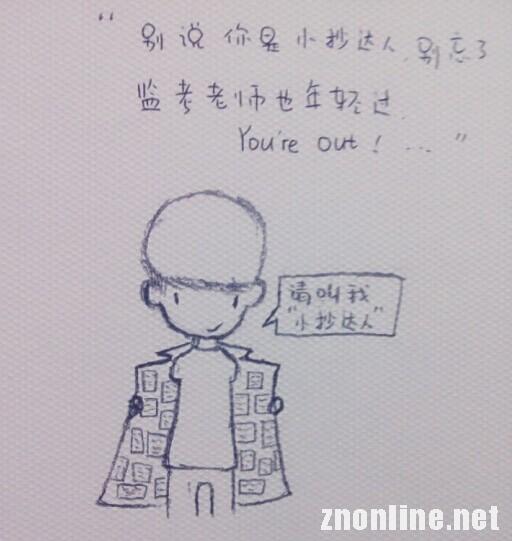 “ 别说你是小抄达人,别忘了
监考老师也年轻过.
You're out! ... ”
请叫我
“小抄达人”
znonline.net